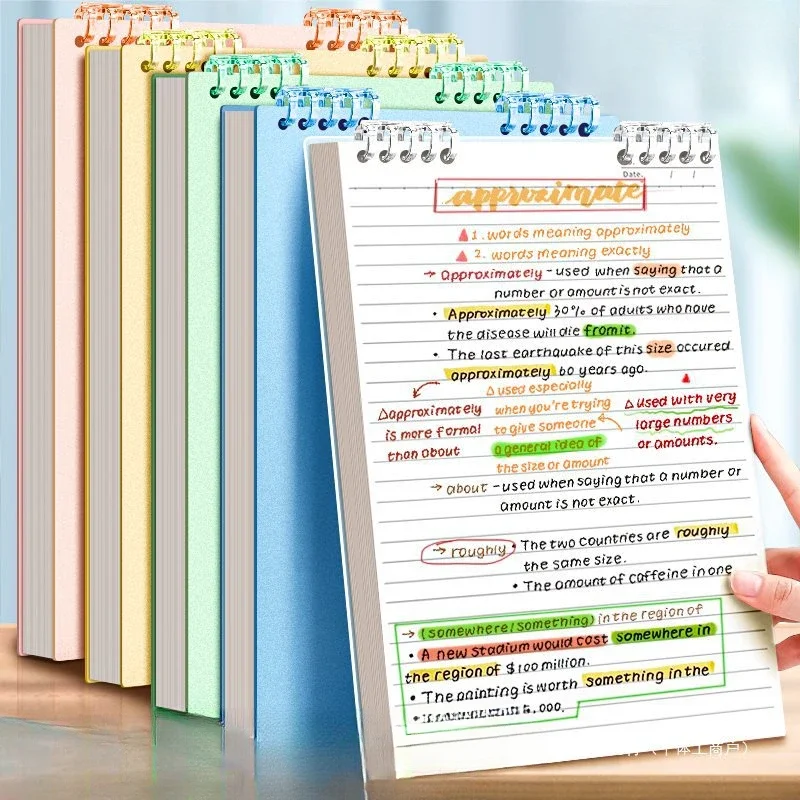 Date. / /
approximate
1. words meaning approximately
2. words meaning exactly
→ approximately - used when saying that a
number or amount is not exact.
• Approximately 30% of adults who have
the disease will die from it.
• The last earthquake of this size occured
approximately 60 years ago.
△approximately
is more formal
than about
△ used especially
when you're trying
to give someone
a general idea of
the size or amount
△ used with very
large numbers
or amounts.
→ about - used when saying that a number or
amount is not exact.
→ roughly • The two countries are roughly
the same size.
• The amount of caffeine in one
→ (somewhere/something) in the region of
• A new stadium would cost somewhere in
the region of $100 million.
• The painting is worth something in the
,000.
(个体工商户)